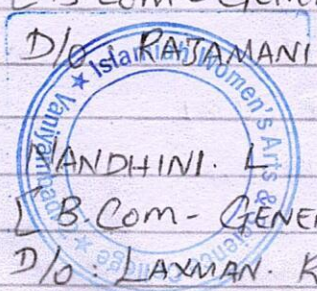 B.Com - GENE
D/o : RAJAMANI
NANDHINI. L
I B.Com - GENER
D/o : LAXMAN. K
★ Islamiah Women's Arts & Science College ★ Vaniyambadi